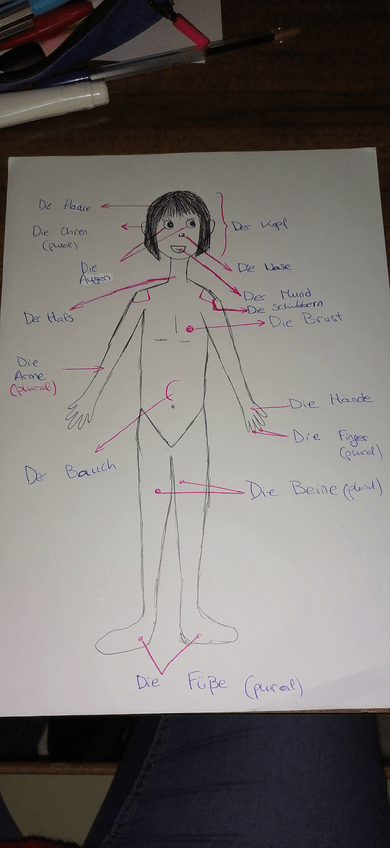 Die Haare
Die Ohren
(plural)
Der Kopf
Die
Augen
Die Nase
Der Mund
Die Schultern
Der Hals
Die Brust
Die
Arme
(plural)
Die Hände
Die Finger
(plural)
Der Bauch
Die Beine (plural)
Die Füße (plural)